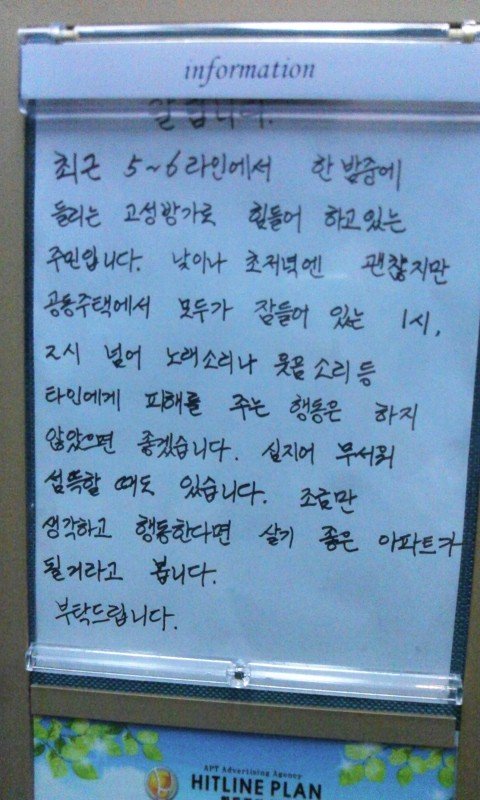 information
알립니다.
최근 5~6라인에서 한 밤중에
들리는 고성방가로 힘들어 하고있는
주민입니다. 낮이나 초저녁엔 괜찮지만
공동주택에서 모두가 잠들어 있는 1시,
2시 넘어 노래소리나 웃음소리 등
타인에게 피해를 주는 행동은 하지
않았으면 좋겠습니다. 심지어 무서워
섬뜩할 때도 있습니다. 조금만
생각하고 행동한다면 살기 좋은 아파트가
될거라고 봅니다.
부탁드립니다.
APT Advertising Agency
HITLINE PLAN